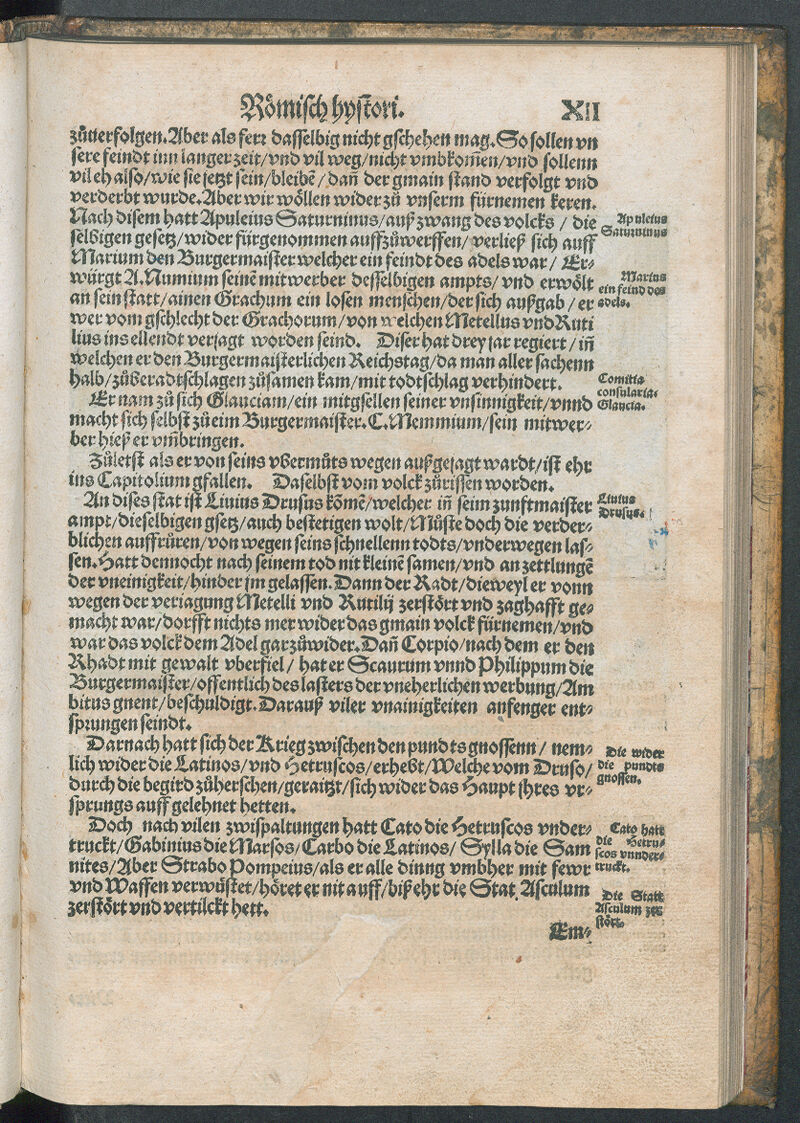 Römisch hystori. XII
zůuerfolgen. Aber als ferꝛ dasselbig nicht gschehen mag. So sollen vn
sere feindt inn langer zeit/vnd vil weg/nicht vmbkom̃en/vnd sollenn
vil eh also/wie sie jetzt sein/bleibẽ/dañ der gmain stand verfolgt vnd
verderbt wurde. Aber wir wöllen wider zů vnserm fürnemen keren.
Nach disem hatt Apuleius Saturninus/auß zwang des volcks/die
selbigen gesetz/wider fürgenommen auffzůwerffen/verließ sich auff
Marium den Burgermaister welcher ein feindt des adels war/Er⸗
würgt A. Numium seinẽ mitwerber desselbigen ampts/vnd erwölt
an sein statt/ainen Grachum ein losen menschen/der sich außgab/er
wer vom gschlecht der Grachorum/von welchen Metellus vnd Ruti
lius ins ellendt verjagt worden seind. Diser hat drey jar regiert/iñ
welchen er den Burgermaisterlichen Reichstag/da man aller sachenn
halb/zůberadtschlagen zůsamen kam/mit todtschlag verhindert.
Er nam zů sich Glauciam/ein mitgsellen seiner vnsinnigkeit/vnnd
macht sich selbst zů eim Burgermaister. C. Memmium/sein mitwer⸗
ber hieß er vm̃bringen.
Zůletst als er von seins vbermůts wegen außgejagt wardt/ist ehr
ins Capitolium gfallen. Daselbst vom volck zůrissen worden.
An dises stat ist Liuius Drusus kõmẽ/welcher iñ seim zunftmaister
ampt/dieselbigen gsetz/auch bestetigen wolt/Můste doch die verder⸗
blichen auffrůren/von wegen seins schnellenn todts/vnderwegen las⸗
sen. Hatt dennocht nach seinem tod nit kleinẽ samen/vnd an zettlungẽ
der vneinigkeit/hinder jm gelassen. Dann der Radt/dieweyl er vonn
wegen der veriagung Metelli vnd Rutilij zerstört vnd zaghafft ge⸗
macht war/dorfft nichts mer wider das gmain volck fürnemen/vnd
war das volck dem Adel gar zůwider. Dañ Corpio/nach dem er den
Rhadt mit gewalt vberfiel/hat er Scaurum vnnd Philippum die
Burgermaister/offentlich des lasters der vneherlichen werbung/Am
bitus gnent/beschuldigt. Darauß viler vnainigkeiten anfenger ent⸗
sprungen seindt.
Darnach hatt sich der Krieg zwischen den pundtsgnossenn/nem⸗
lich wider die Latinos/vnd Hetruscos/erhebt/Welche vom Druso/
durch die begird zůherschen/geraitzt/sich wider das Haupt jhres vr⸗
sprungs auff gelehnet hetten.
Doch nach vilen zwispaltungen hatt Cato die Hetruscos vnder⸗
truckt/Gabinius die Marsos/Carbo die Latinos/Sylla die Sam
nites/Aber Strabo Pompeius/als er alle dinng vmbher mit fewr
vnd Waffen verwüstet/höret er nit auff/biß ehr die Stat Asculum
zerstört vnd vertilckt hett.
Em⸗
Apuleius
Saturninus
Marius
ein feind des
adels.
Comitia
consularia.
Glaucia.
Liuius
Drusus.
Die wider
die pundts
gnossen.
Cato hatt
die Hetru⸗
scos vnnder⸗
truckt.
Die Statt
Asculum zer
stört.